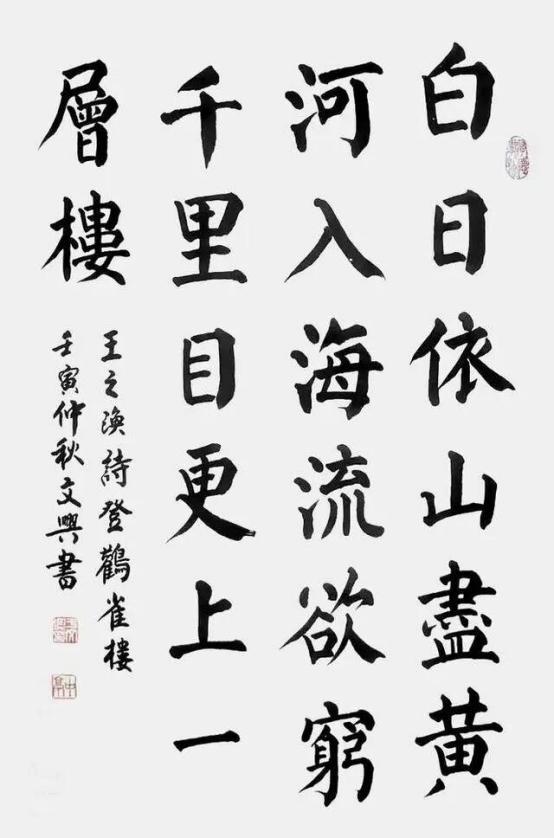 白日依山盡黄
河入海流欲窮
千里目更上一
層樓
王之渙詩登鸛雀樓
壬寅仲秋文興書